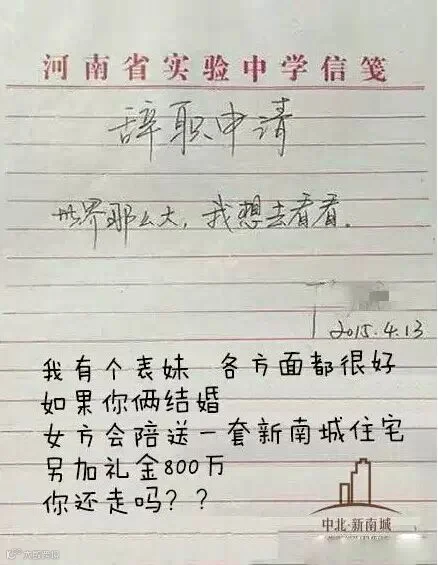 河南省实验中学信笺
辞职申请
世界那么大，我想去看看．
2015.4.13
我有个表妹 各方面都很好
如果你俩结婚
女方会陪送一套新南城住宅
另加礼金800万
你还走吗？？
中北·新南城